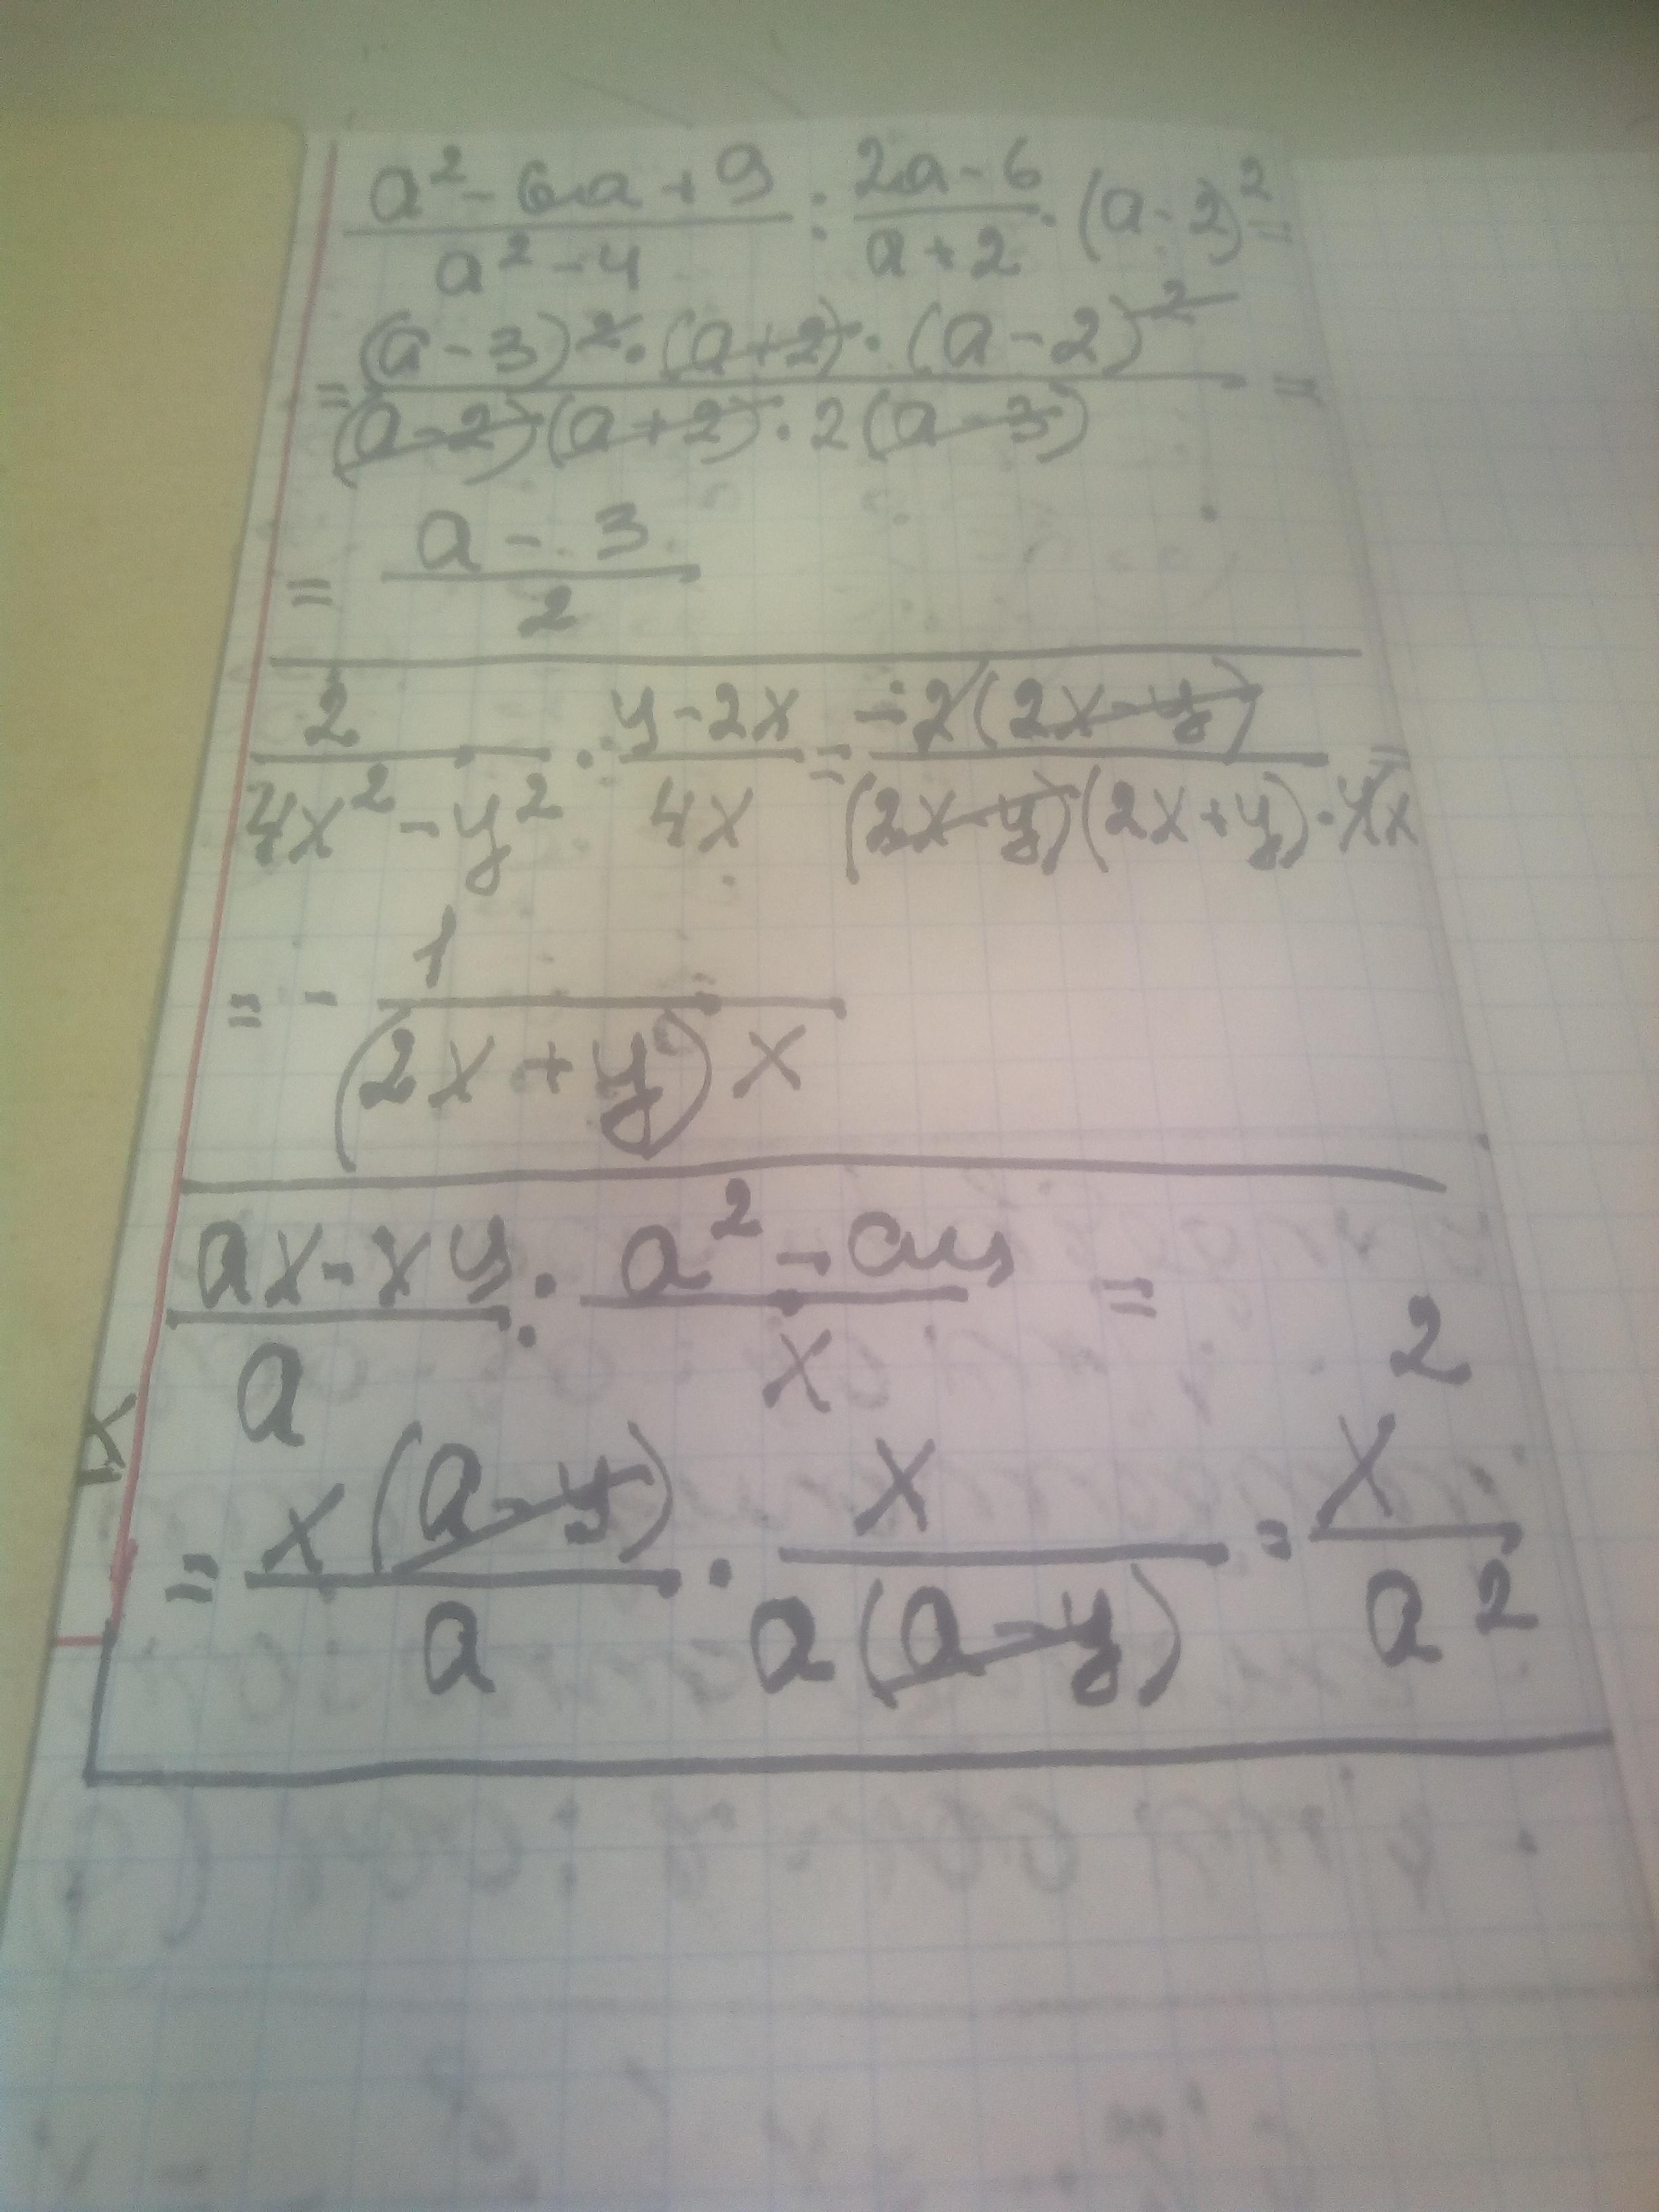 (a² - 6a + 9)/(a² - 4) : (2a - 6)/(a + 2) · (a - 2)² =
= ((a - 3)² · (a + 2) · (a - 2)²)/((a - 2)(a + 2) · 2(a - 3)) =
= (a - 3)/2
2/(4x² - y²) · (y - 2x)/(4x) = (-2(2x - y))/((2x - y)(2x + y) · 4x) =
= - 1/((2x + y)x)
(ax - xy)/a : (a² - ay)/x =
= (x(a - y))/a · x/(a(a - y)) = x²/a²